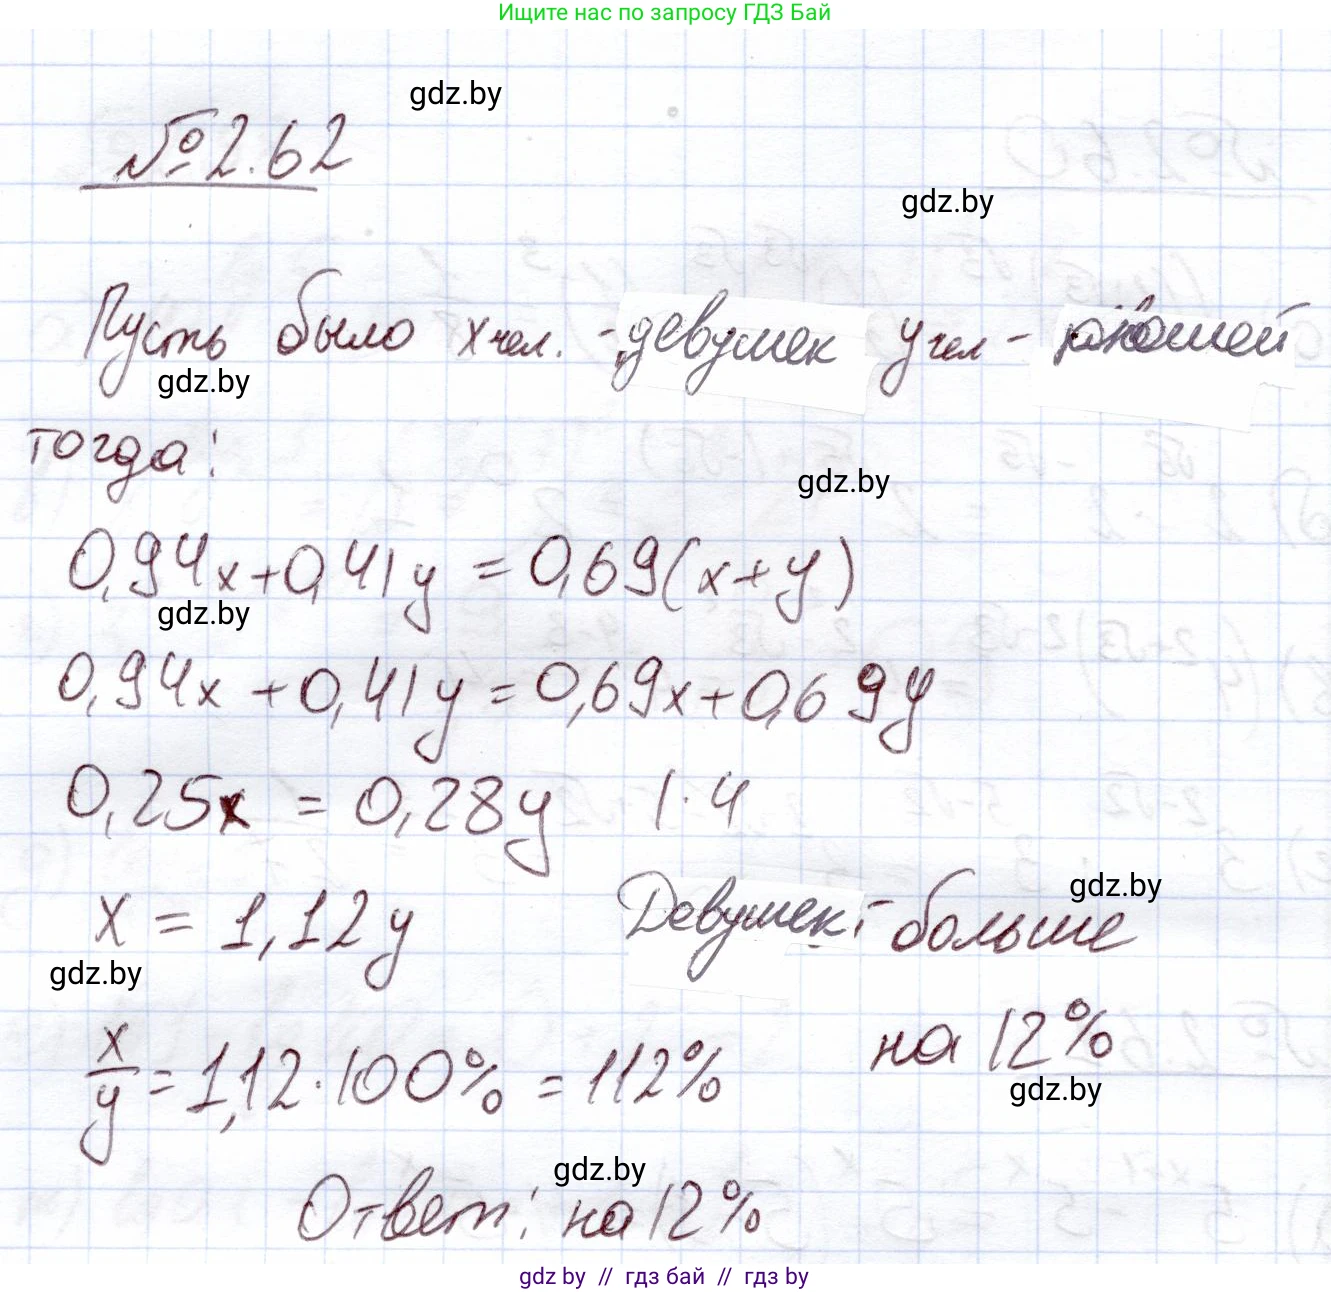 Ищите нас по запросу ГДЗ Бай
gdz.by
№2.62
gdz.by
Пусть было x чел. - девушек y чел - юношей
gdz.by
тогда:
gdz.by
0,94x+0,41y = 0,69(x+y)
gdz.by
0,94x + 0,41y = 0,69x + 0,69y
0,25x = 0,28y |·4
gdz.by
x = 1,12y Девушек - больше
gdz.by
на 12%
x/y = 1,12·100% = 112%
gdz.by
gdz.by
Ответ: на 12%
gdz by // гдз бай // гдз by